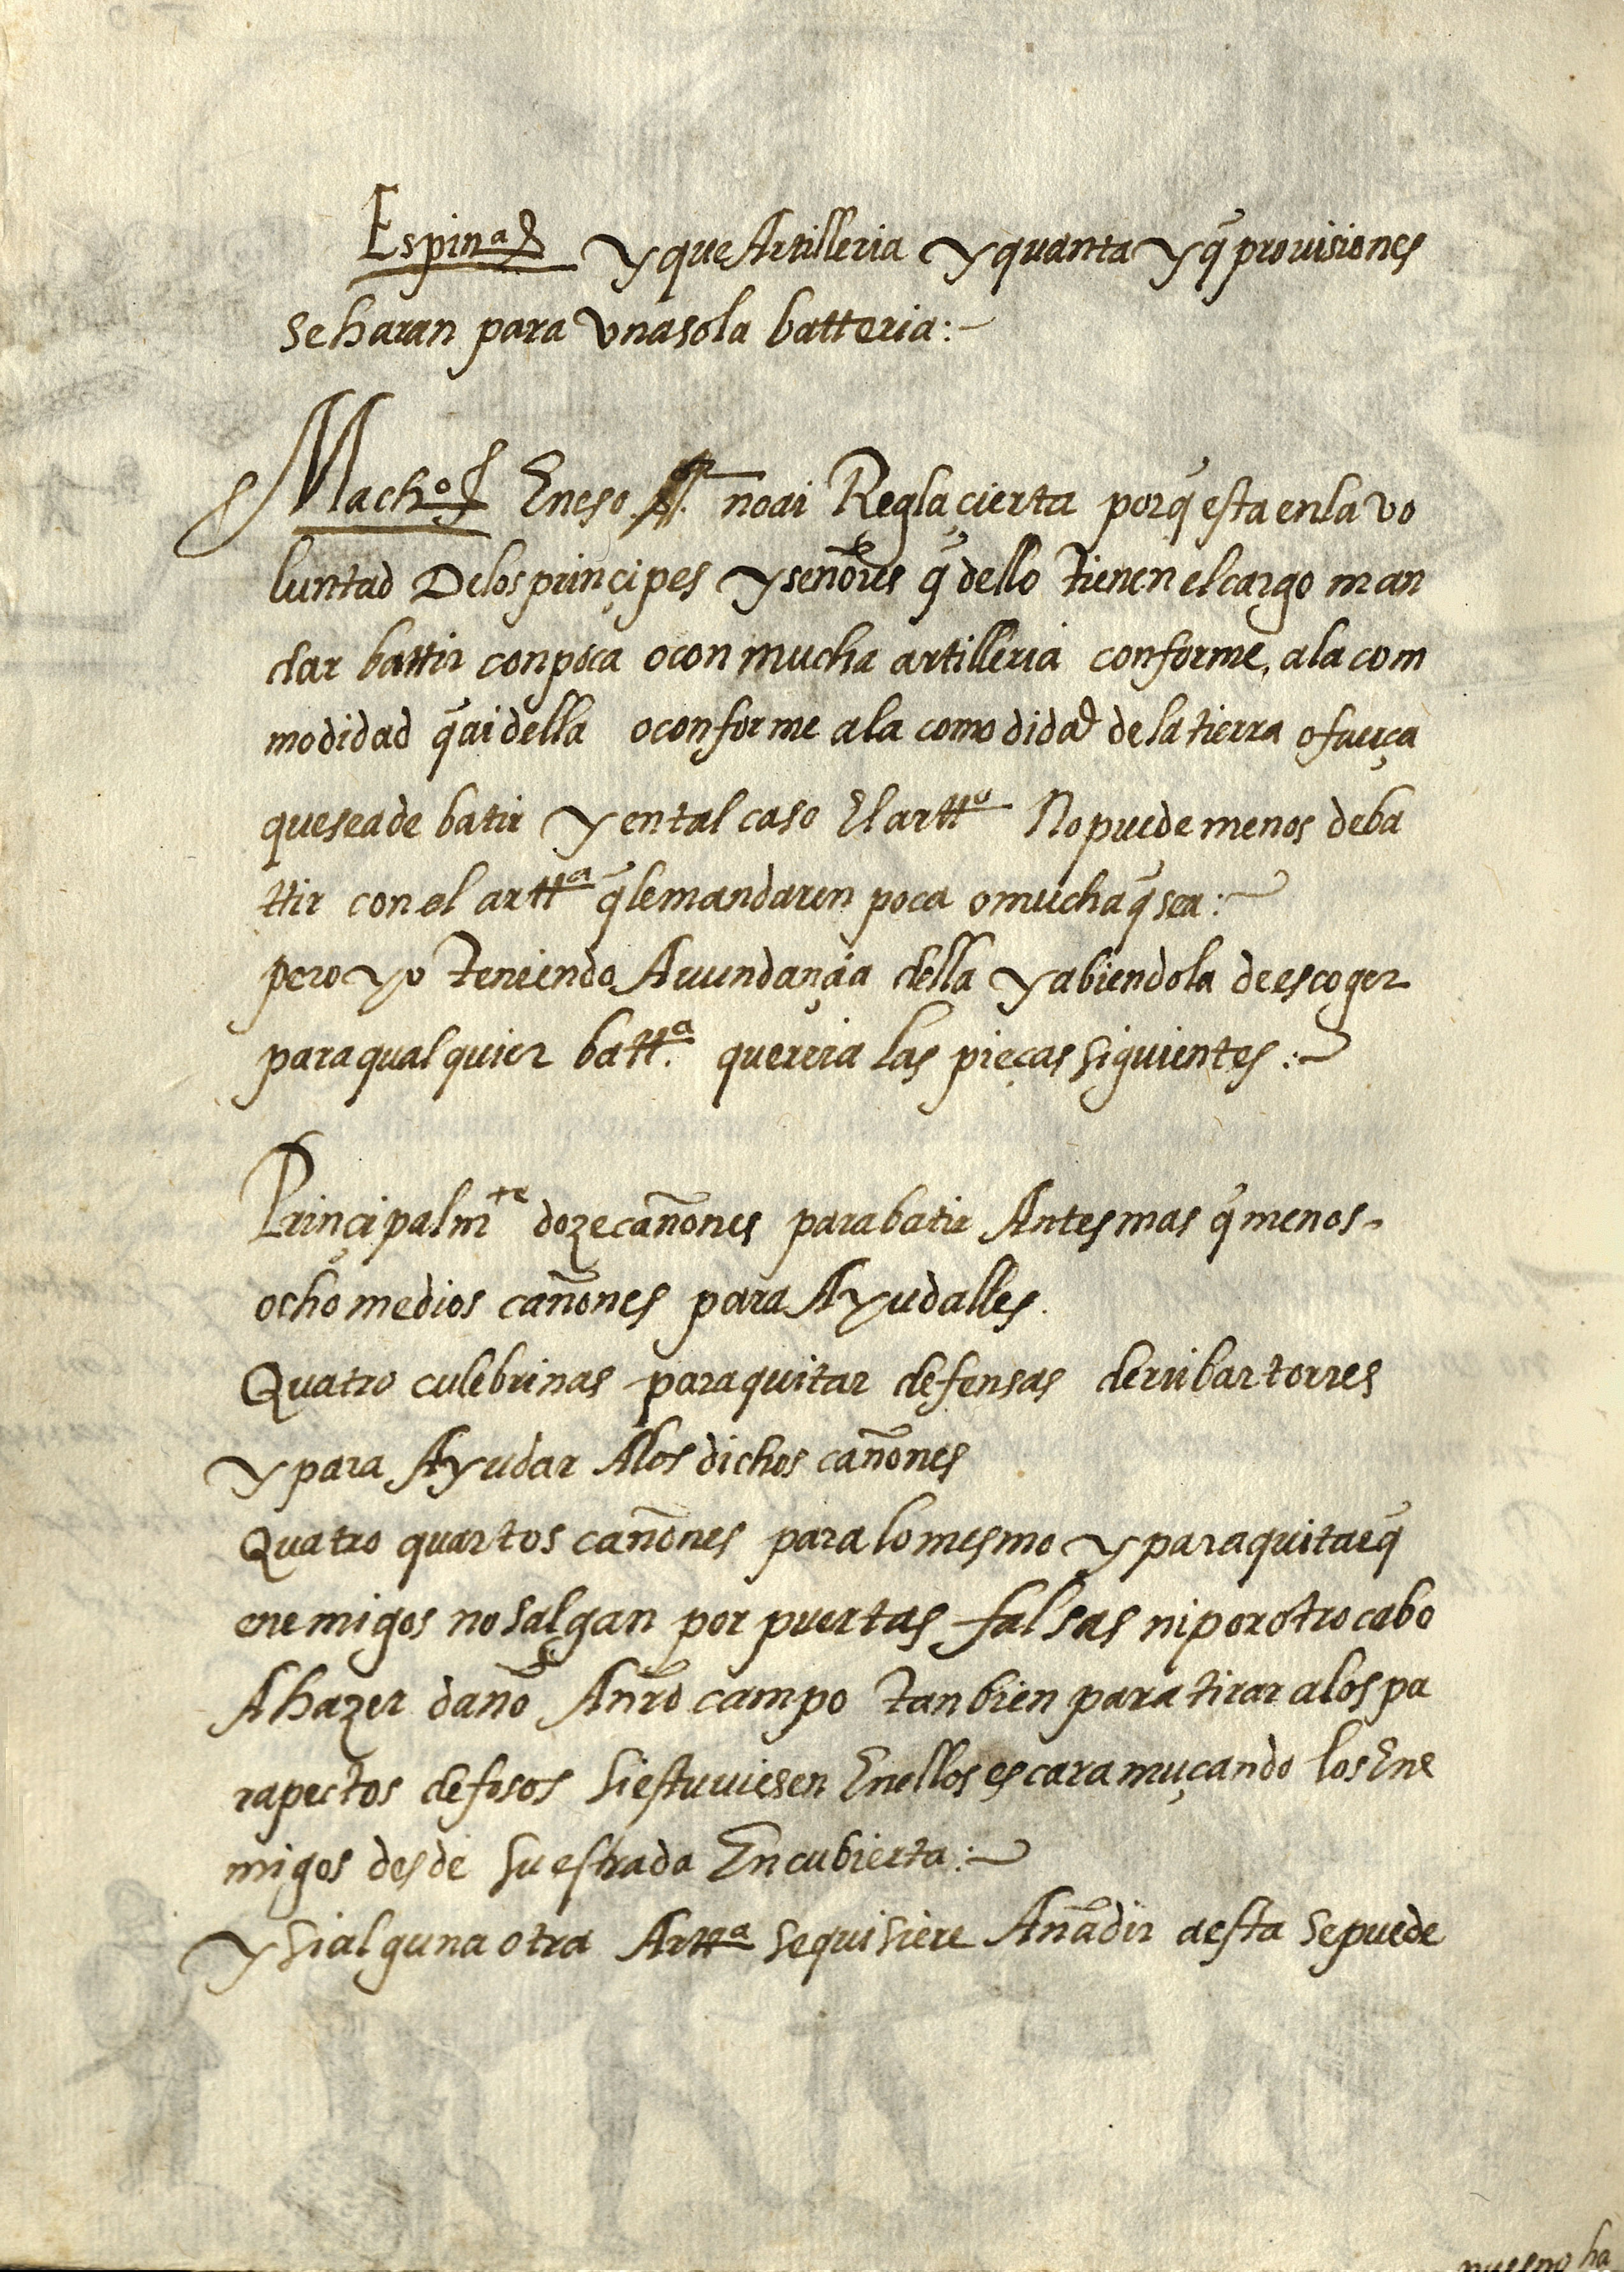 Espin.ª y que Artilleria y quanta y q̃ provisiones
se haran para vna sola batteria:-
Mach.º En eso no ai Regla çierta porq̃ esta en la vo
luntad De los prinçipes y señores q̃ dello tienen el cargo man
dar battir con poca o con mucha artilleria conforme, a la com
modidad q̃ ai della o conforme a la comodidad de la tierra o fuerça
que se a de batir y en tal caso El arttº No puede menos de ba
ttir con el arttª q̃ le mandaren poca o mucha q̃ sea:-
pero yo teniendo Avundançia della y abiendola de escoger
para qualquier battª. querria las pieças siguientes:-
Prinçipalmte doze cañones para batir Antes mas q̃ menos-
ocho medios cañones para Ayudalles.
Quatro culebrinas para quitar defensas derribar torres
y para Ayudar A los dichos cañones
Quatro quartos cañones para lo mesmo y para quitar q̃
enemigos no salgan por puertas falsas ni por otro cabo
A hazer daño A nrõ campo tanbien para tirar a los pa
rapectos de fosos si estuviesen En ellos escaramuçando los Ene
migos desde su estrada Encubierta:-
y si alguna otra Arttª se quisiere Añadir a esta se puede